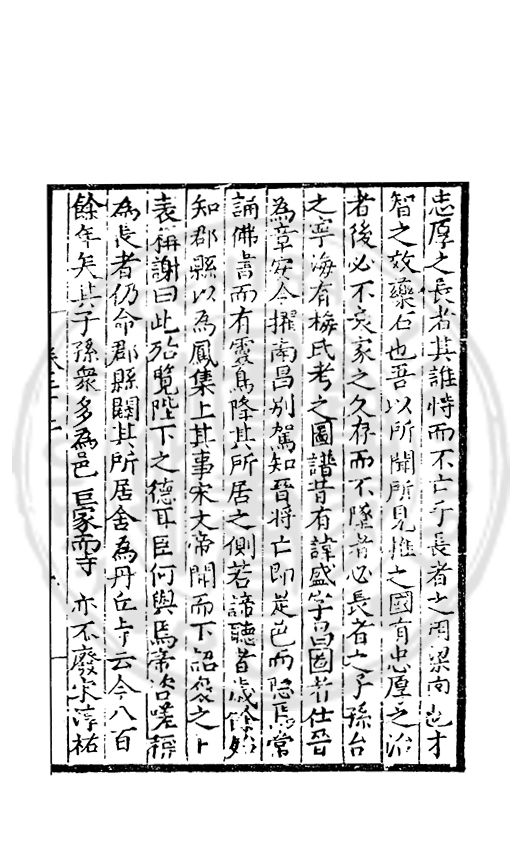 忠厚之長者其誰恃而不亡乎長者之用梁肉也才
智之效藥石也吾以所聞所見推之國有忠厚之治
者後必不衰家之久存而不墜者必長者之子孫台
之寧海有梅氏考之圖譜昔有諱盛字昌圖者仕晉
為章安令擢南昌別駕知晉將亡即是邑而隱焉常
誦佛書而有靈鳥降其所居之側若諦聽者歲餘始
知郡縣以為鳳集上其事宋文帝聞而下詔褒之上
表稱謝曰此殆覽陛下之德耳臣何與焉帝咨嗟稱
為長者仍命郡縣闢其所居舍為丹丘寺云今八百
餘年矣其子孫衆多為邑巨家而寺亦不廢宋淳祐
卷三十二